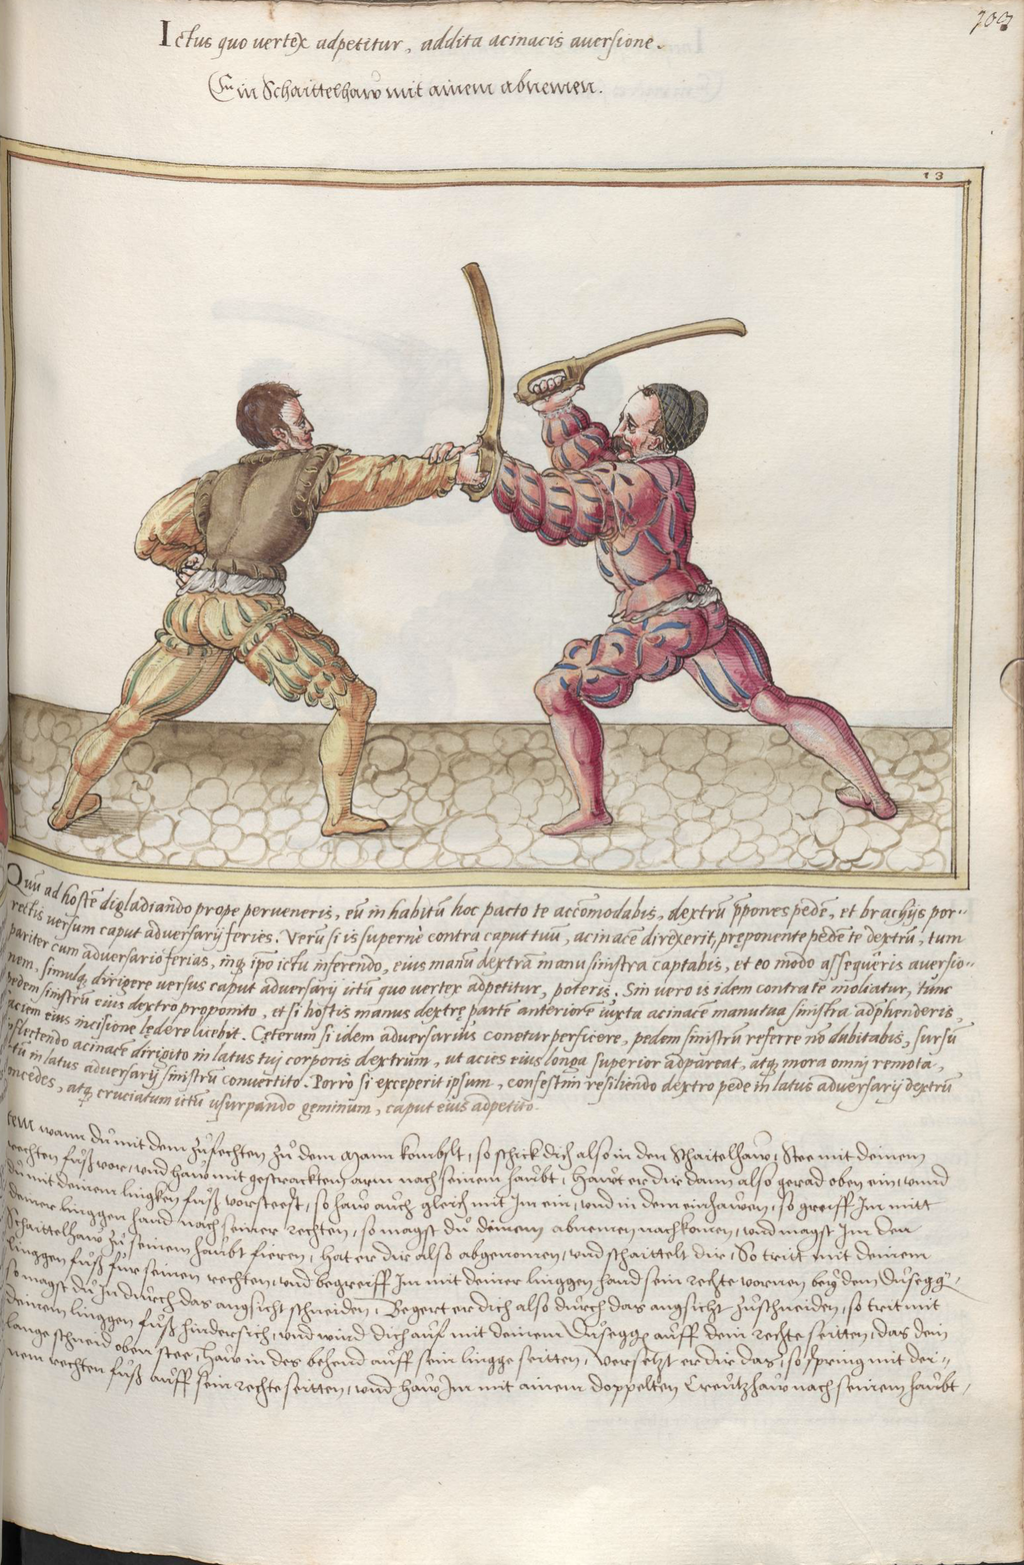 Ictus quo vertex adpetitur, addita acinacis aversione.
Ein Schaittelhaw mit ainem abnemen.
13
Quũ ad hostẽ digladiando prope perveneris, eũ in habitũ hoc pacto te accõmodabis, dextrũ p̃pones pedẽ, et brachijs por-
rectis versum caput adversarij feries. Verũ si is supernè contra caput tuũ, acinacẽ direxerit, preponente pedẽ te dextrũ, tum
pariter cum adversario ferias, inq̃ ip̃o ictu inferendo, eius manũ dextrã manu sinistra captabis, et eo modo assequêris aversio-
nem, simulq̃ dirigere versus caput adversarij ictũ quo vertex adpetitur, poteris. Sin vero is idem contra te moliatur, tunc
pedem sinistrũ eius dextro proponito, et si hostis manus dextrę partẽ anteriorẽ iuxta acinacẽ manu tua sinistra adp̃henderis,
faciem eius incisione lędere licebit. Cęterum si idem adversarius conetur perficere, pedem sinistrũ referre nõ dubitabis, sursũ
inflectendo acinacẽ dirigito in latus tuj corporis dextrum, ut acies eius longa superior adpareat, atq̃ mora omnj remota,
ictũ in latus adversarij sinistrũ convertito. Porrò si exceperit ipsum, confestim resiliendo dextro pede in latus adversarij dextrũ
concedes, atq̃ cruciatum ictũ usurpando geminum, caput eius adpetito.
Item wann dů mit dem zůfechten zů dem Mann kombst, so schick dich also in den Schaitelhaw, Stee mit deinem
rechten fůß vor, vnd haw mit gestracktem arm nach seinem haůbt, Hawt er dir dann also gerad oben ein, vnnd
dů mit deinem lingken fůß vorsteest, so haw auch gleich mit Im ein, vnd in dem einhawen, so greiff Im mitt
deiner linggen hand nach seiner rechten, so magst dů deinem abnemen nachkomen, vnd magst Im den
Schaittelhaw zů seinem haůbt fieren, Hat er dir also abgenomen, vnd schaittelt dir, So tritt mit deinem
linggen fůß fur seinen rechten, vnd begreiff Im mit deiner linggen hand sein rechte vornen bey dem Dusegg-
so magst dů In důrch das angsicht schneiden, Begert er dich also důrch das angsicht zůschneiden, so trit mit
deinem linggen fůß hindersich, vnd wind dich auf mit deinem Dusegg auff dein rechte seitten, das dein
lange schneid oben stee, haw in des behend auff sein lingge seitten, Versetzt er dir das, so spring mit dei-
nem rechten fůß auff sein rechte seitten, vnd haw Im mit ainem doppelten Creutzhaw nach seinem haůbt,